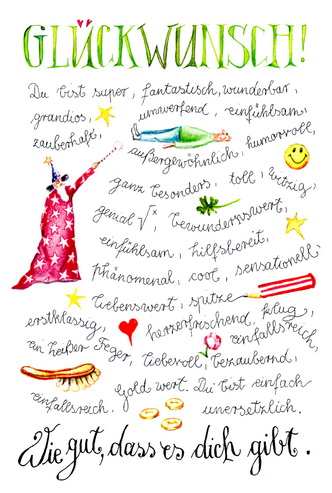 GLÜCKWUNSCH!
Du bist super, fantastisch, wunderbar,
grandios, umwerfend, einfühlsam,
zauberhaft, humorvoll,
außergewöhnlich,
ganz besonders, toll, witzig,
genial √x, bewundernswert,
einfühlsam, hilfsbereit,
phänomenal, cool, sensationell,
liebenswert, spitze
erstklassig, herzerfrischend, klug,
einfallsreich,
ein heißer Feger, liebevoll, bezaubernd,
Gold wert. Du bist einfach
einfallsreich. unersetzlich.
Wie gut, dass es dich gibt.